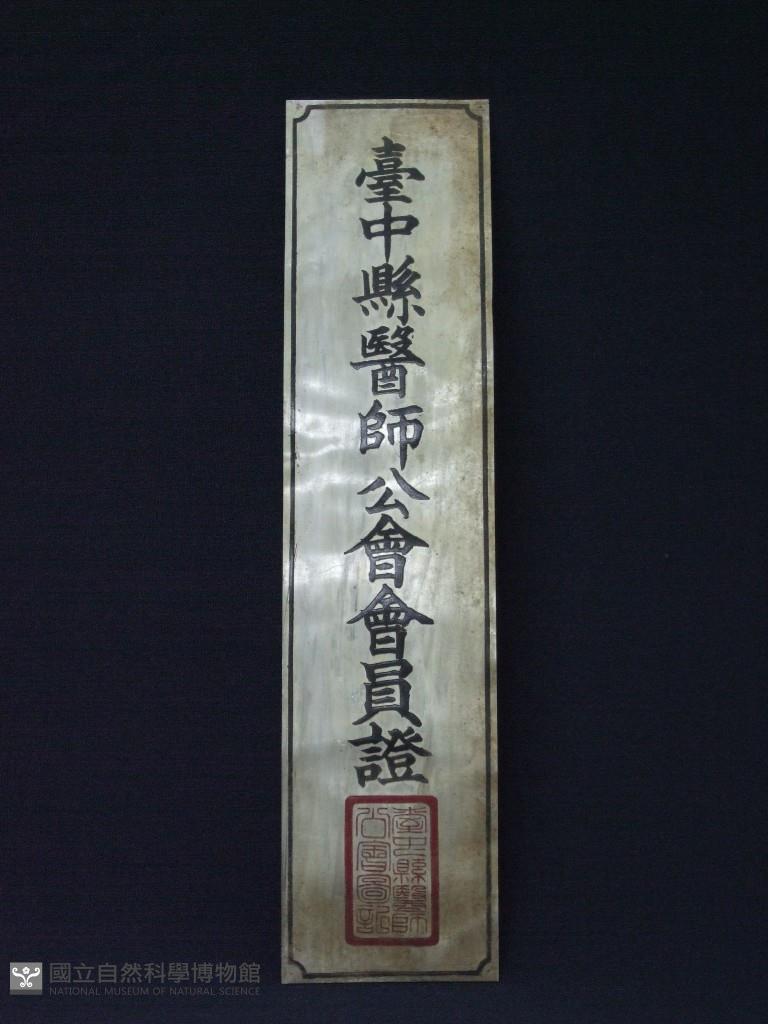 臺中縣醫師公會會員證
臺中縣醫師
公會圖記
國立自然科學博物館
NATIONAL MUSEUM OF NATURAL SCIENCE